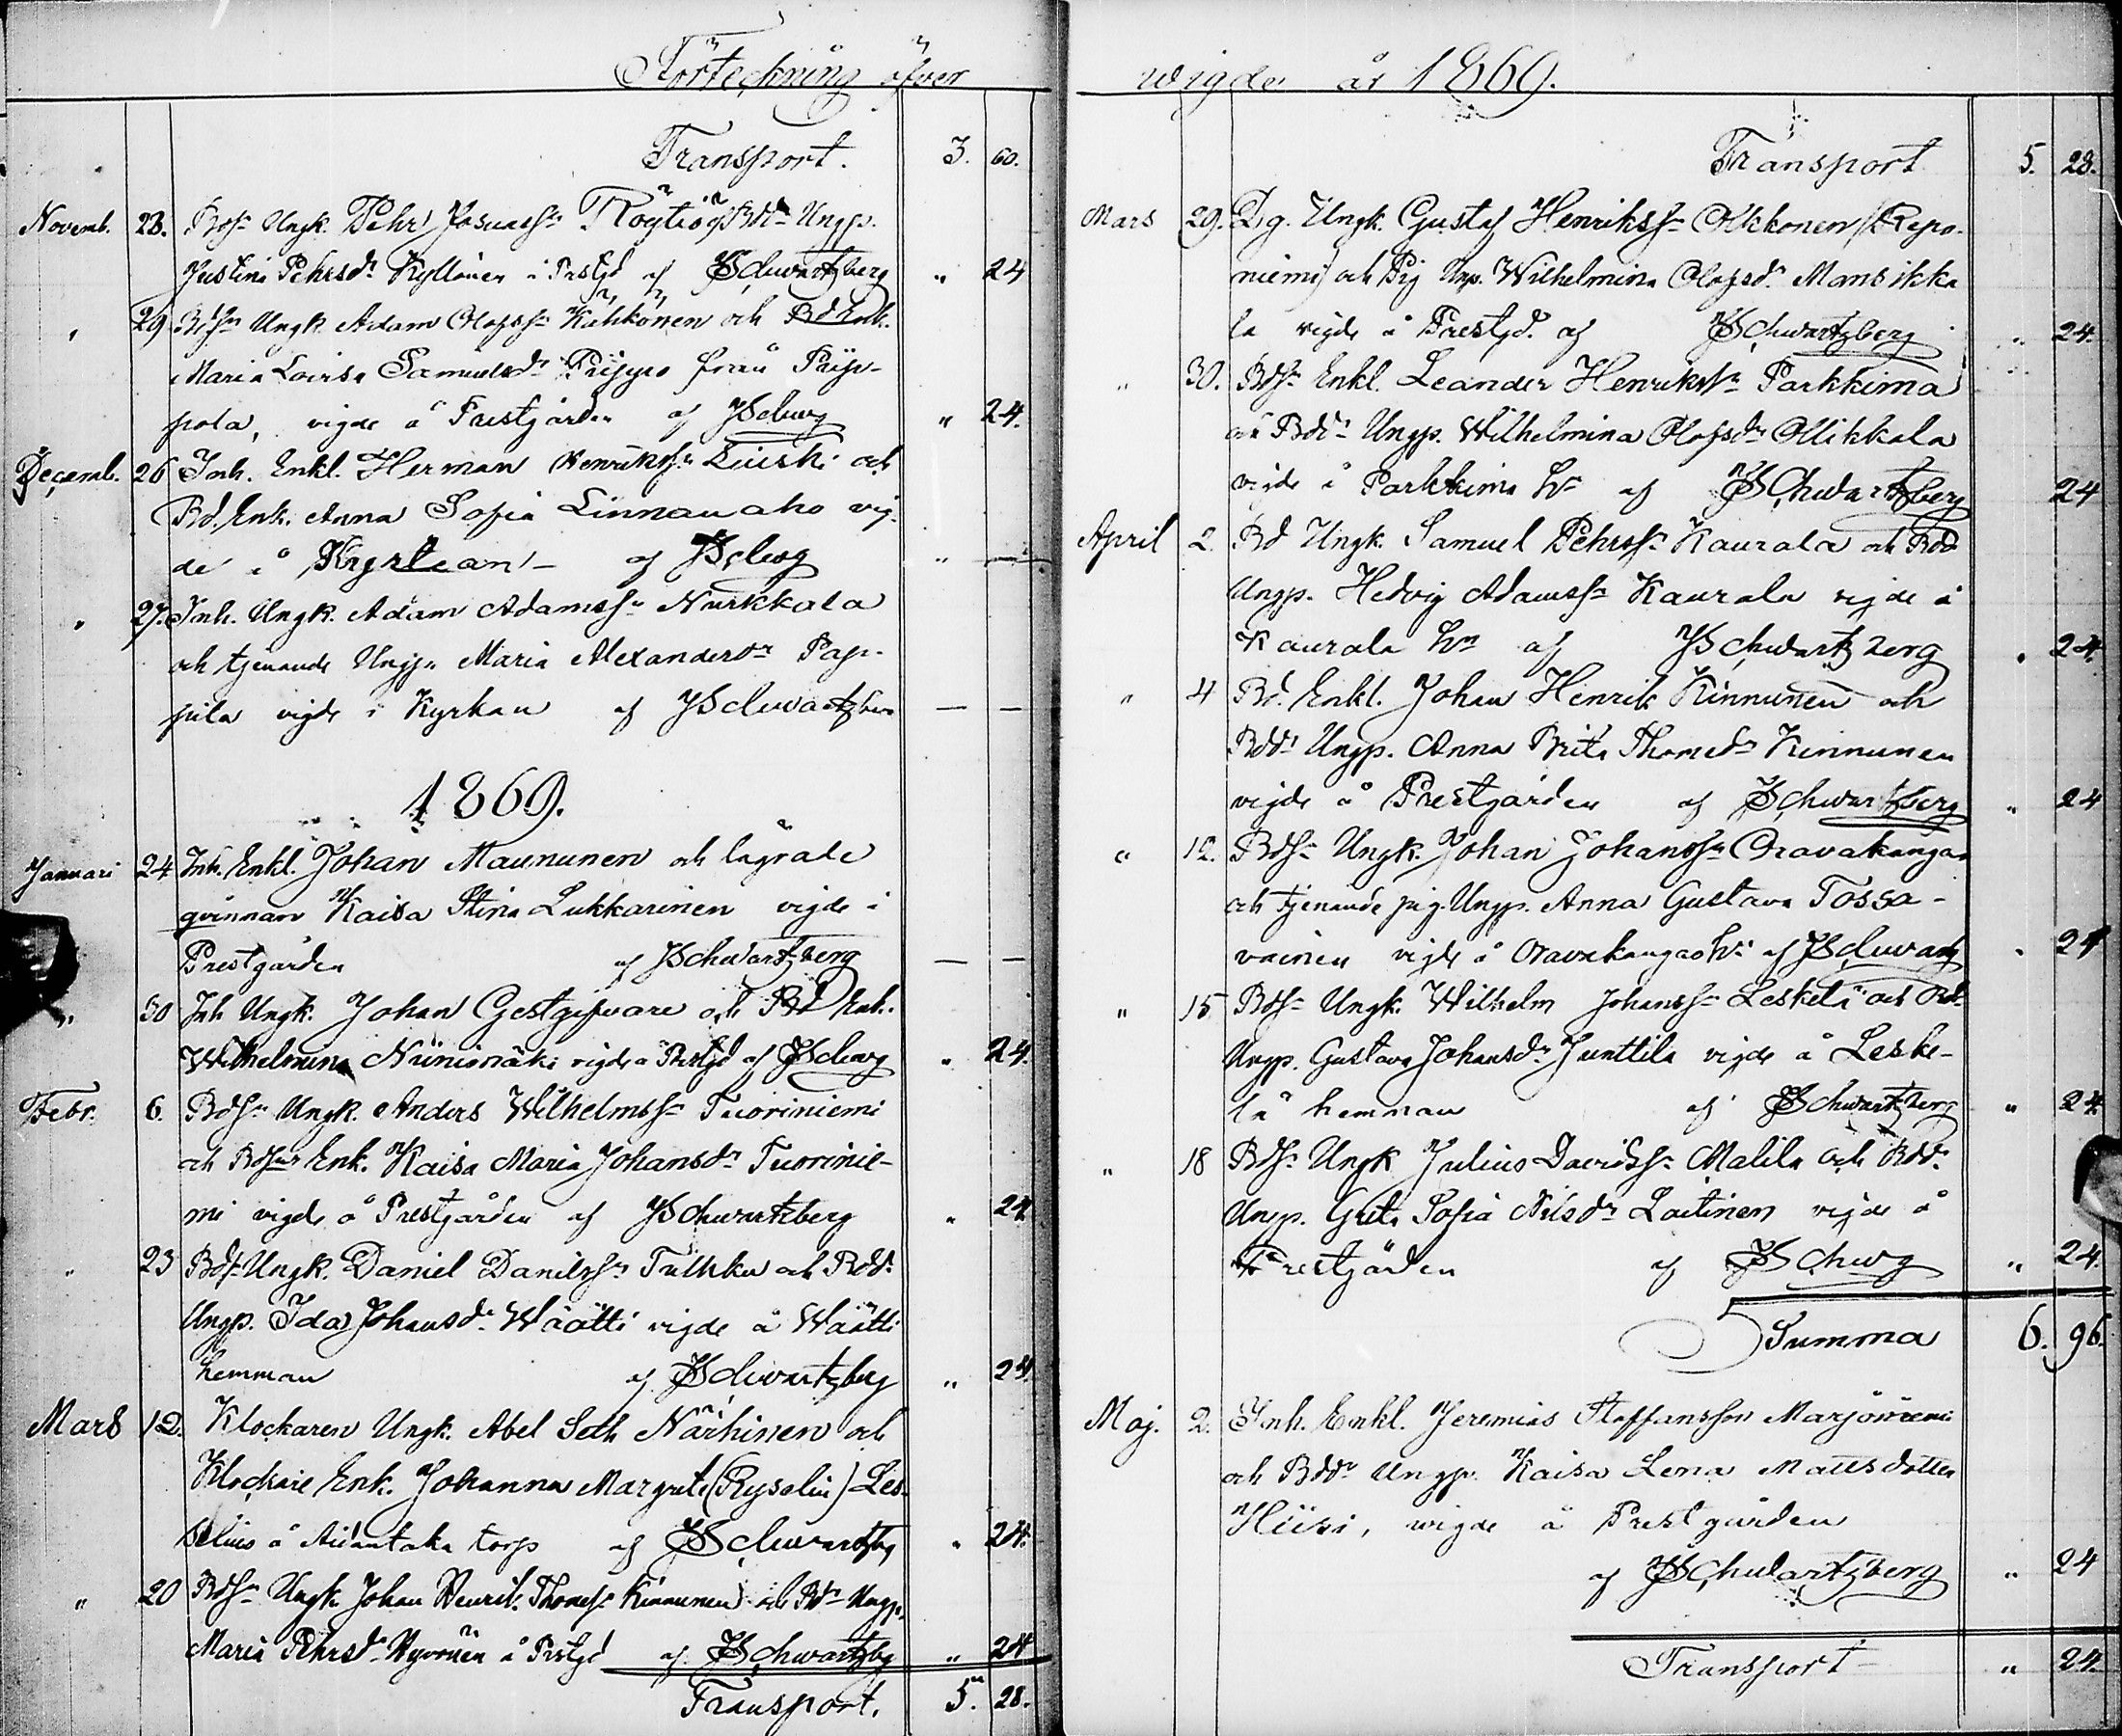 Förteckning öfver
Transport. 3. 60.
Novemb. 23. Bdsn Ungk. Pehr Josuass. Röytiö o Bddr Ungp.
Justina Pehrsdr Kyllönen i Prstgd af JSchwartzberg " 24
" 29 Bdsn Ungk. Adam Olofssn Kuhkonen och Bd Enk.
Maria Lovisa Samuelsdr Piippo från Piip-
pola, vigde å Prestgården af JSchwg " 24.
Decemb. 26 Inh. Enkl. Herman Henrikssn och
Bd. Enk. Anna Sofia Linnanaho vig-
de i Kyrkan - af JSchwg " —
" 27. Inh. Ungk. Adam Adamssn Nurkkala
och tjenande Ungp. Maria Alexandersdr Pap-
pila vigde i Kyrkan af JSchwartzberg — —
1869.
Januari 24 Inh. Enkl. Johan Maununen och lägrade
qvinnan Kaisa Stina Lukkarinen vigde i
Prestgården af JSchwartzberg — —
" 30 Inh Ungk. Johan Gestgifvare och Bd Enk.
Wilhelmina Niinimäki vigde å Prstgd af JSchwg " 24.
Febr. 6. Bdsn Ungk. Anders Wilhelmssn Tuoriniemi
och Enk. Kaisa Maria Johansdr Tuorinie-
mi vigde å Prestgården af JSchwartzberg " 24
" 23 Bdsn Ungk. Daniel Danielssn Tulkku och Bddr
Ungp. Ida Johansdr Wäätti vigde å Wäätti
hemman af JSchwartzberg " 24.
Mars 12. Klockaren Ungk. Abel Seth Närhinen och
Klockare Enk. Johanna Margreta (Ryselin) Les-
selius å torp af JSchwartzbg " 24.
" 20 Bdsn Ungk Johan Henrik Thomssn Kinnunen och Bdr Ungp.
Maria Pehrsdr Hyvönen å Prstgd af JSchwartzbg " 24
Transport. 5. 28.
wigde år 1869.
Transport 5. 28.
Mars 29. Dg. Ungk. Gustaf Henrikssn Olkkonen (Repo-
niemi) och Pig Unp. Wilhelmina Olofsdr Mansikka
la vigde å Prestgd. af JSchwartzberg " 24.
" 30. Bdsn Enkl. Leander Henrikssn Parkkima
och Bddr Ungp. Wilhelmina Olofsdr Ollikkala
vigde å Parkkima hn af JSchwartzberg 24
April 2. Bd Ungk. Samuel Pehrssn Kaurala och Bddr
Ungp. Hedvig Adamssn Kaurala vigde å
Kaurala hn af JSchwartzberg " 24.
" 4 Bd. Enkl. Johan Henrik Kinnunen och
Bddr Ungp. Anna Brita Thomsdr Kinnunen
vigde å Prestgården af JSchwartzberg " 24
" 12. Bdsn Ungk. Johan Johanssn Oravakangas
och tjenande pig. Ungp. Anna Gustava Tossa-
vainen vigde å Oravakangas hn af JSchwartz " 24
" 15 Bdsn Ungk. Wilhelm Johanssn Leskelä och Bdr
Ungp. Gustava Johansdr Junttila vigde å Leske-
lä hemman af JSchwartzberg " 24
" 18 Bdsn Ungk Julius Davidssn Malila och Bddr
Ungp. Greta Sofia Nilsdr Laitinen vigde å
Prestgården af JSchwg " 24.
Summa 6. 96.
Maj. 2. Inh. Enkl. Jeremias Staffansson Marjoniemi
och Bddr Ungp. Kaisa Lena Mattsdotter
Hiisi, wigde å Prestgården
af JSchwartzberg " 24
Transport " 24.